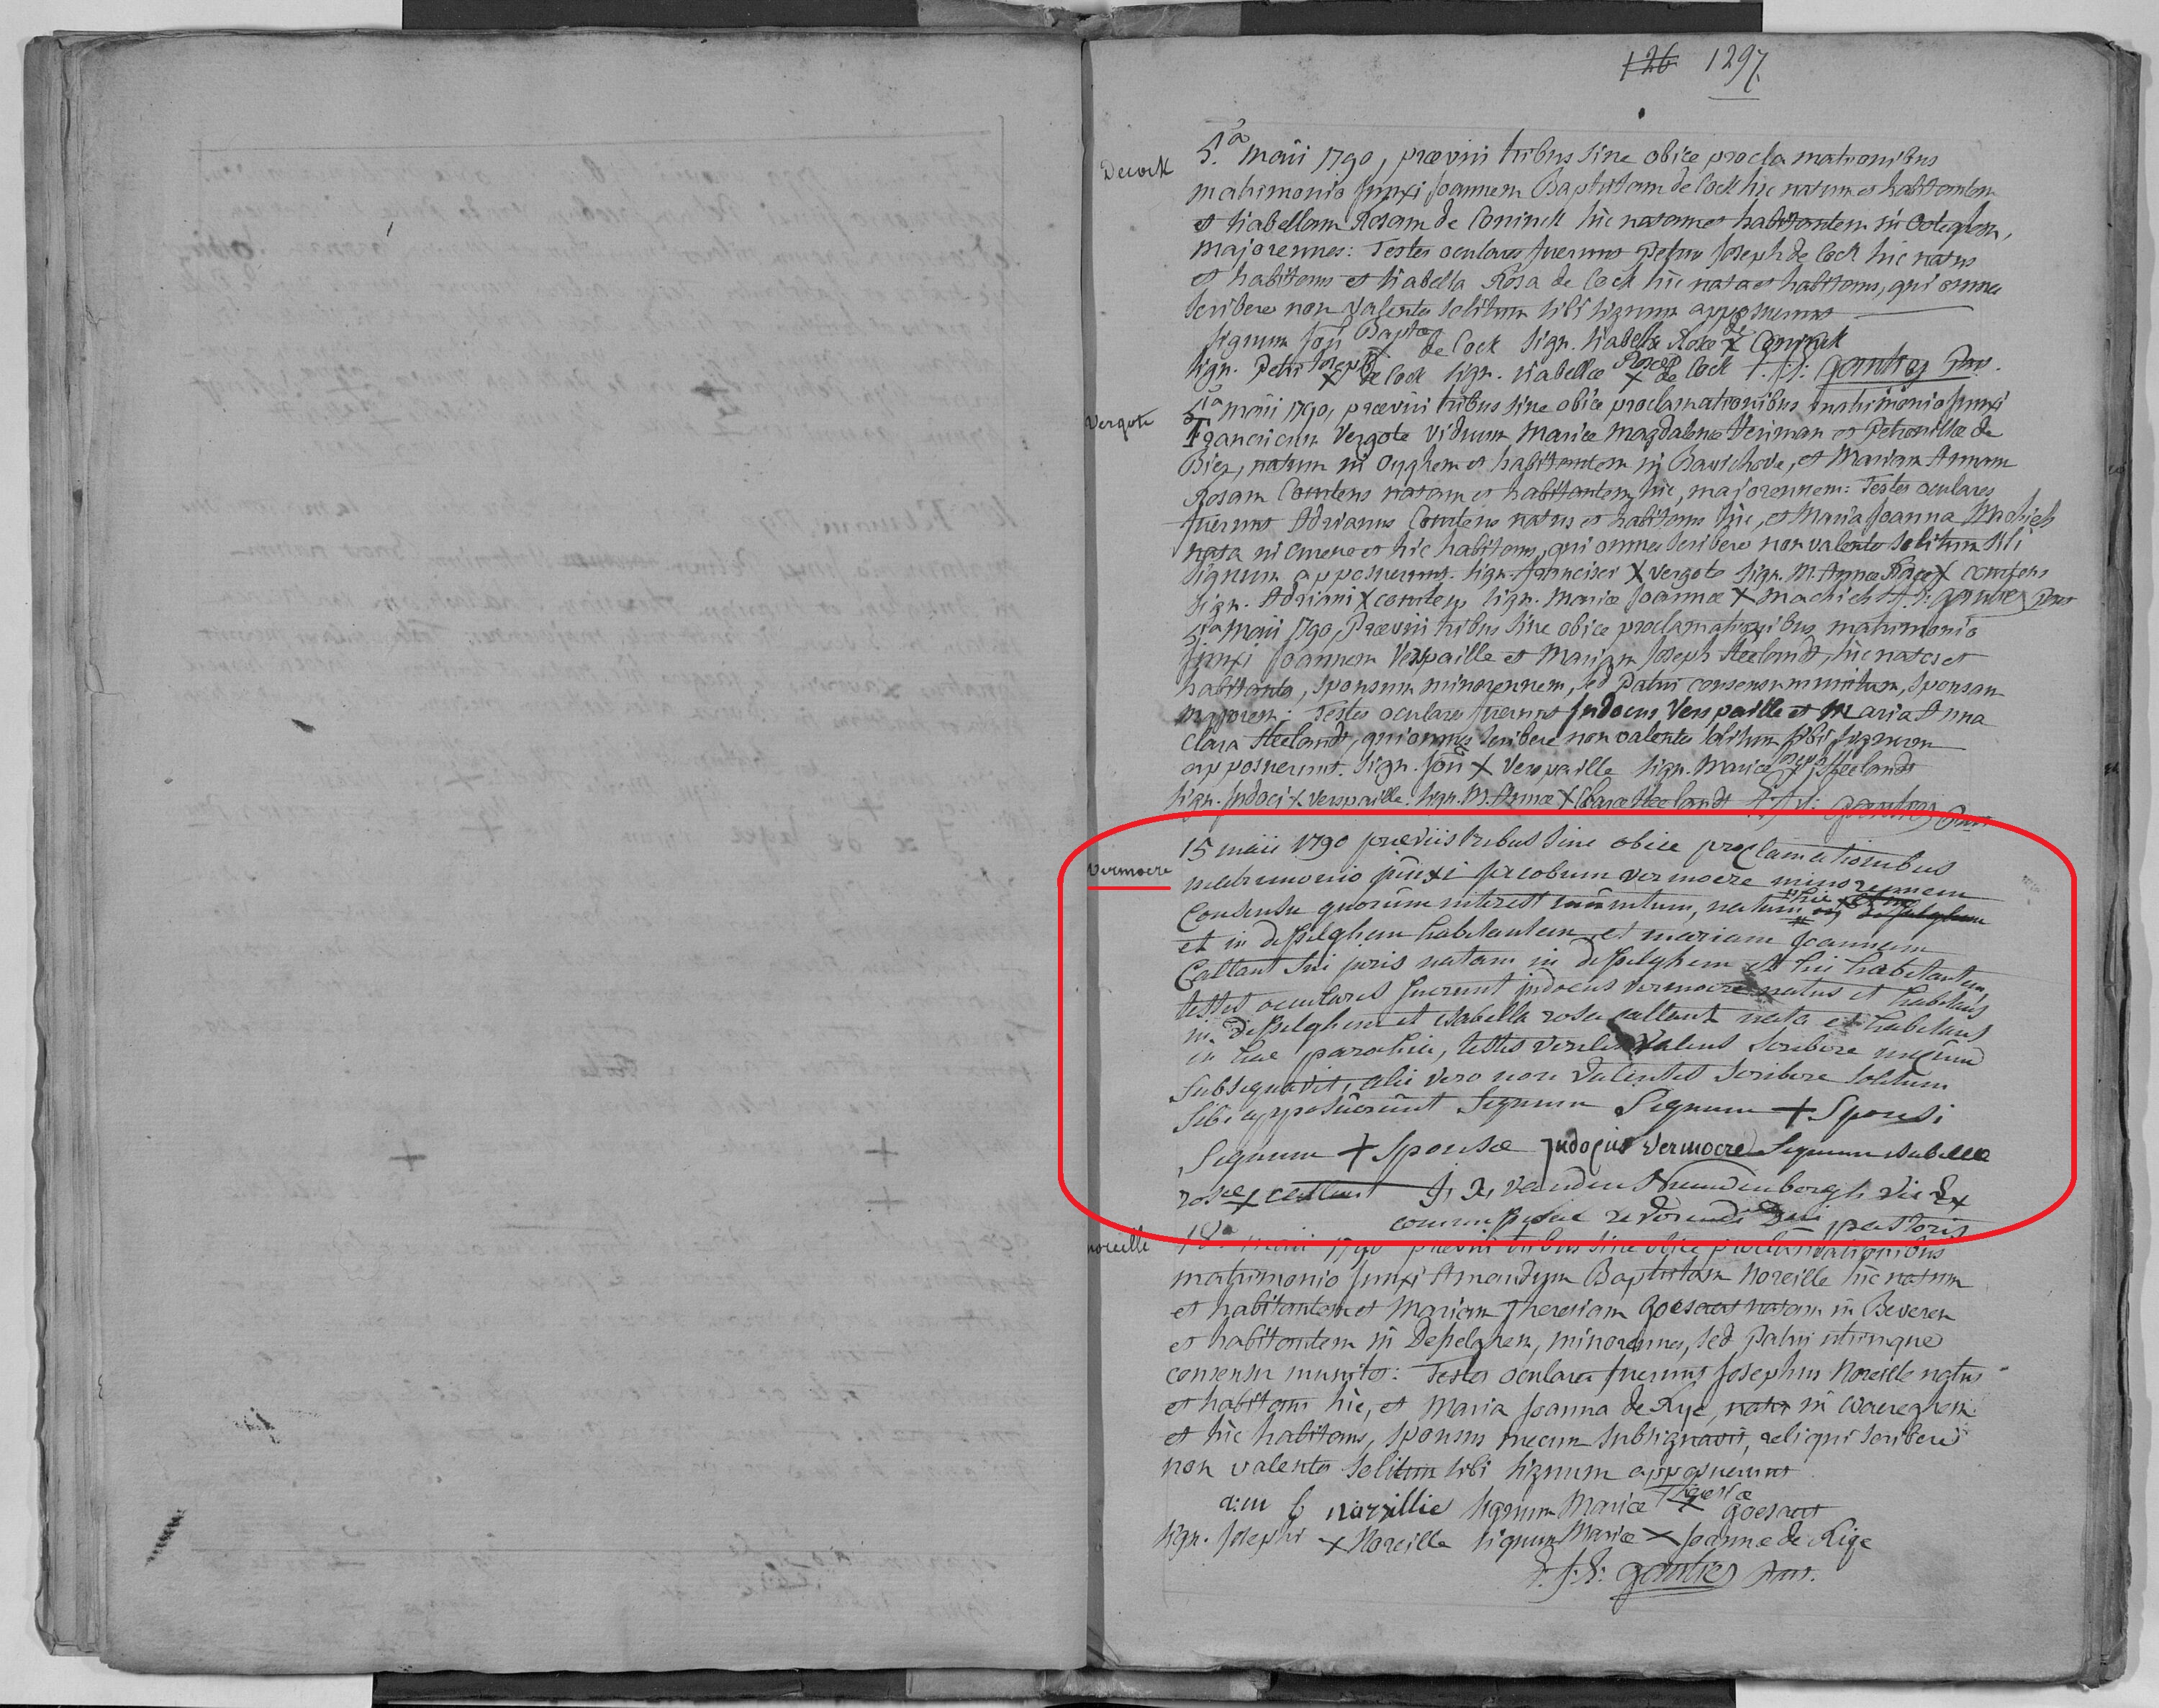 126 1297
Decock
5.a maii 1790, præviis tribus sine obice proclamationibus
matrimonio junxi Joannem Baptistam de Cock hic natum et habitantem
et Isabellam Rosam de Coninck hic natam et habitantem in Ooteghem,
majorennes: Testes oculares fuerunt Petrus Joseph de Cock hic natus
et habitans et Isabella Rosa de Cock hic nata et habitans, qui omnes
scribere non valentes solitum sibi signum apposuerunt
signum Jois Baptæ de Cock sign. Isabellæ Rosæ X de Coninck
sign. Petri Joseph X de Cock sign. Isabellæ Rosæ X de Cock F: J: J: Gontier Past.
Vergote
5.a maii 1790, præviis tribus sine obice proclamationibus matrimonio junxi
Franciscum Vergote viduum Mariæ Magdalenæ Veriman et Petronillæ de
Bier, natum in Oyghem et habitantem in Bavichove, et Mariam Annam
Rosam Comtens natam et habitantem hic, majorennem: Testes oculares
fuerunt Adrianus Comtens natus et habitans hic, et Maria Joanna Machiels
nata in Cuerne et hic habitans, qui omnes scribere non valentes solitum sibi
signum apposuerunt. sign. Francisci X Vergote sign. M. Annæ Rosæ X Comtens
sign. Adriani X Comtens sign. Mariæ Joannæ X Machiels F. J. J: Gontier Past
5.a maii 1790, Præviis tribus sine obice proclamationibus matrimonio
junxi Joannem Verspaille et Mariam Joseph Steelandt, hic natos et
habitantes, sponsum minorennem, sed Patris consensu munitum, sponsam
majorem: Testes oculares fuerunt Judocus Verspaille et Maria Anna
Clara Steelandt, qui omnes scribere non valentes solitum sibi signum
apposuerunt. sign. Jois X Verspaille sign. Mariæ Joseph X Steelandt
sign. Judoci X Verspaille. sign. M. Annæ X Claræ Steelandt F: J: J: Gontier Past
Vermoere
15 maii 1790 præviis tribus sine obice proclamationibus
matrimonio junxi jacobum vermoere minorennem
Consensu quorum interest munitum, natum # in desselghem # hic
et in desselghem habitantem et mariam joannam
Callant sui juris natam in desselghem et hic habitantem
testes oculares fuerunt judocus vermoere natus et habitans
in desselghem et isabella rosa callant nata et habitans
in hac parochia, testis virilis valens scribere mecum
subsignavit, alii vero non valentes scribere solitum
sibi apposuerunt signum Signum + Sponsi
Signum + Sponsæ judocus vermoere Signum isabellæ
rosæ X callant J, B, vanden Bru­ndenborgh vic ex
commissione reverendi Dni pastoris
noreille
18.a maii 1790 præviis tribus sine obice proclamationibus
matrimonio junxi Amandum Baptistam Noreille hic natum
et habitantem et Mariam Theresiam Goesaert natam in Beveren
et habitantem in Desselghem, minorennes, sed Patris utriusque
consensu munitos: Testes oculares fuerunt Josephus Noreille natus
et habitans hic, et Maria Joanna de Rye, nata in Waereghem
et hic habitans, sponsus mecum subsignavit, reliqui scribere
non valentes solitum sibi signum apposuerunt
a:m b norillie signum Mariæ Theresiæ X Goesaert
sign. Josephi X Noreille signum Mariæ X Joannæ de Rige
F. J. J: Gontier Past.